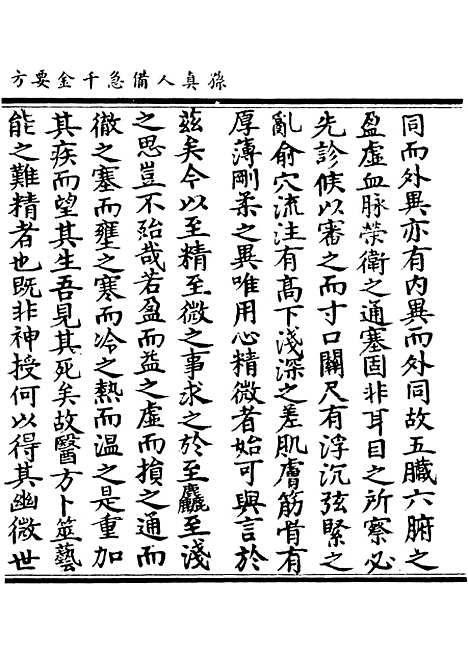 孫真人備急千金要方
同而外異亦有內異而外同故五臟六腑之
盈虛血脉榮衛之通塞固非耳目之所察必
先診候以審之而寸口關尺有浮沉弦緊之
亂俞穴流注有高下淺深之差肌膚筋骨有
厚薄剛柔之異唯用心精微者始可與言於
兹矣今以至精至微之事求之於至麤至淺
之思豈不殆哉若盈而益之虛而損之通而
徹之塞而壅之寒而冷之熱而温之是重加
其疾而望其生吾見其死矣故醫方卜筮藝
能之難精者也既非神授何以得其幽微世